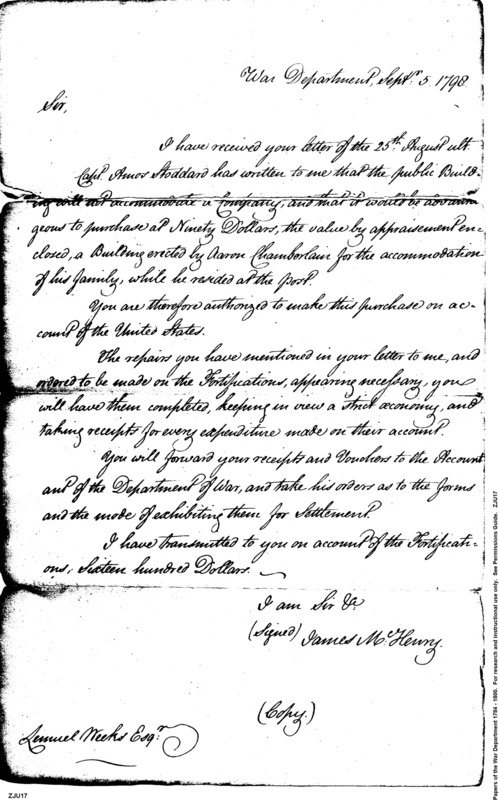 War Department, Septr. 5 1798
Sir,
I have received your letter of the 25th. August ult
Capt. Amos Stoddard has written to me that the public Build-
ing will not accommodate a Company, and that it would be advan
geous to purchase at Ninety Dollars, the value by appraisement en-
closed, a Building erected by Aaron Chamberlain for the accommodation
of his family, while he resided at the post.
You are therefore authorized to make this purchase on ac-
count of the United States.
The repairs you have mentioned in your letter to me, and
ordered to be made on the Fortifications, appearing necessary, you
will have them completed, keeping in view a strict œconomy, and
taking receipts for every expenditure made on their account.
You will forward your receipts and Vouchers to the Account
ant of the Department of War, and take his orders as to the forms
and the mode of exhibiting them for Settlement
I have transmitted to you on account of the Fortificati-
ons, Sixteen hundred Dollars.
I am Sir &c
(Signed) James McHenry.
(Copy.)
Lemuel Weeks Esqr.
ZJU17
Papers of the War Department 1784 - 1800. For research and instructional use only. See Permissions Guide. ZJU17